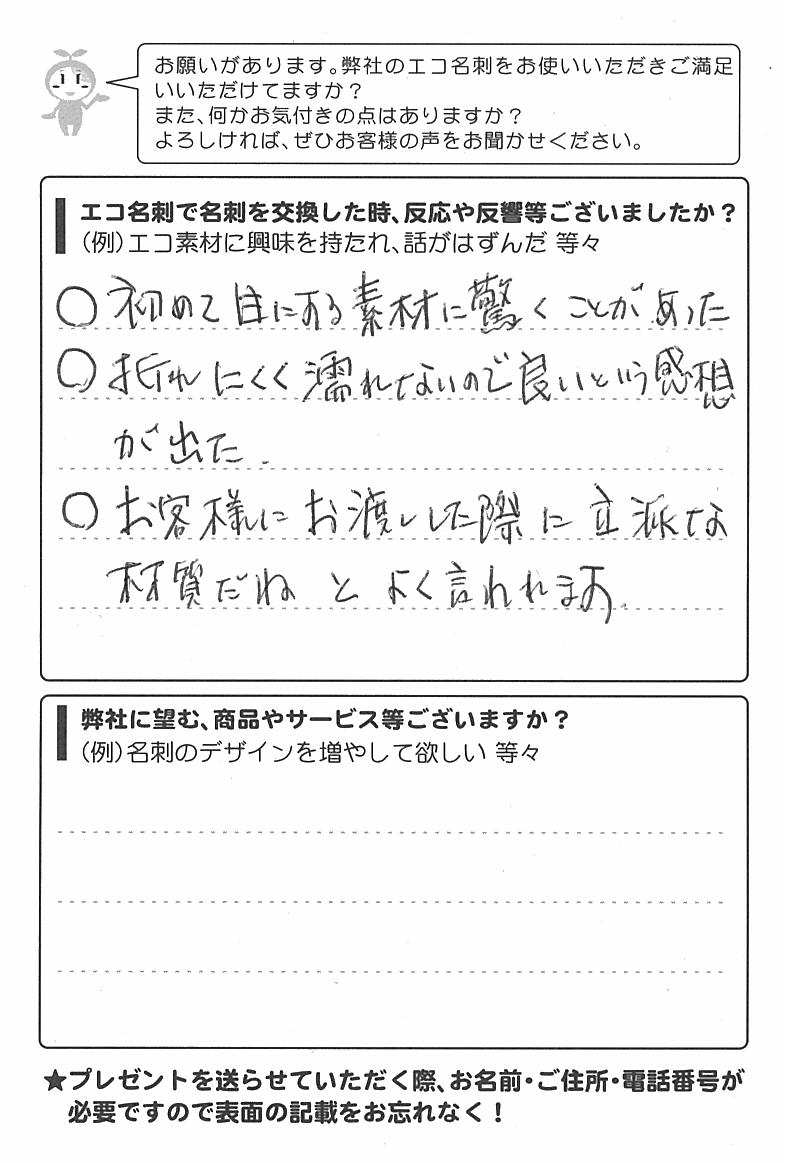 お願いがあります。弊社のエコ名刺をお使いいただきご満足
いいただけてますか？
また、何かお気付きの点はありますか？
よろしければ、ぜひお客様の声をお聞かせください。
エコ名刺で名刺を交換した時、反応や反響等ございましたか？
（例）エコ素材に興味を持たれ、話がはずんだ 等々
○ 初めて目にする素材に驚くことがあった
○ 折れにくく濡れないので良いという感想
が出た.
○ お客様にお渡しした際に立派な
材質だね とよく言われます.
弊社に望む、商品やサービス等ございますか？
（例）名刺のデザインを増やして欲しい 等々
★プレゼントを送らせていただく際、お名前・ご住所・電話番号が
必要ですので表面の記載をお忘れなく！